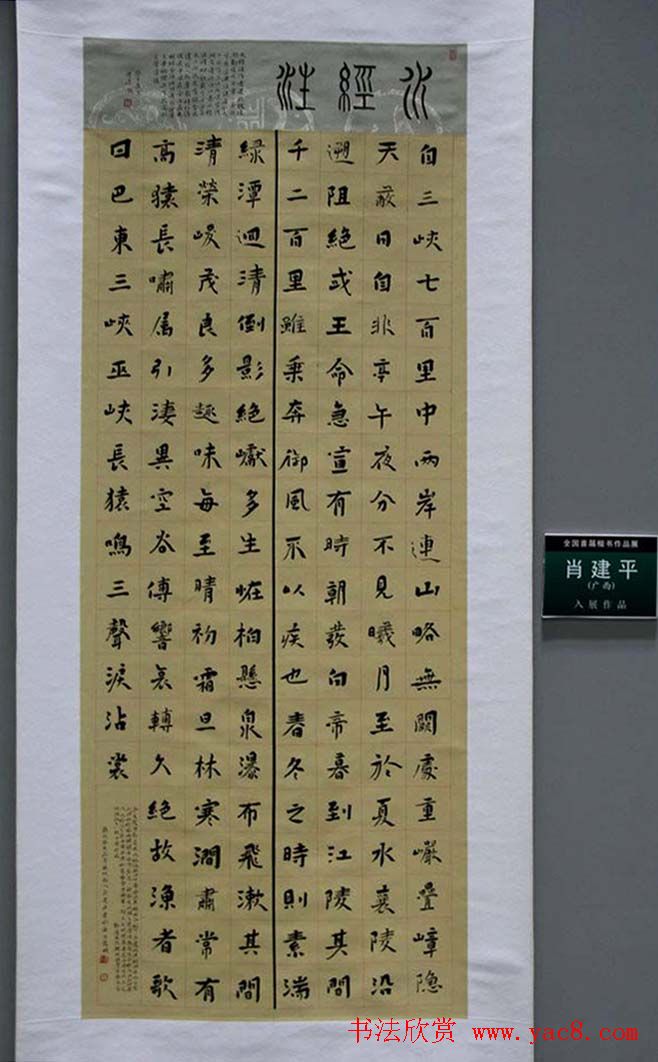 水經注
自三峽七百里中兩岸連山略無闕處重巘疊嶂隐
天蔽日自非亭午夜分不見曦月至於夏水襄陵沿
遡阻絕或王命急宣有時朝發白帝暮到江陵其間
千二百里雖乘奔御風不以疾也春冬之時則素湍
綠潭迴清倒影絕巘多生怪柏懸泉瀑布飛漱其間
清榮峻茂良多趣味每至晴初霜旦林寒澗肅常有
高猿長嘯属引淒異空谷傳響哀轉久絕故漁者歌
曰巴東三峽巫峽長猿鳴三聲淚沾裳
全国首届楷书作品展
肖建平
(广西)
入展作品
书法欣赏 www.yac8.com